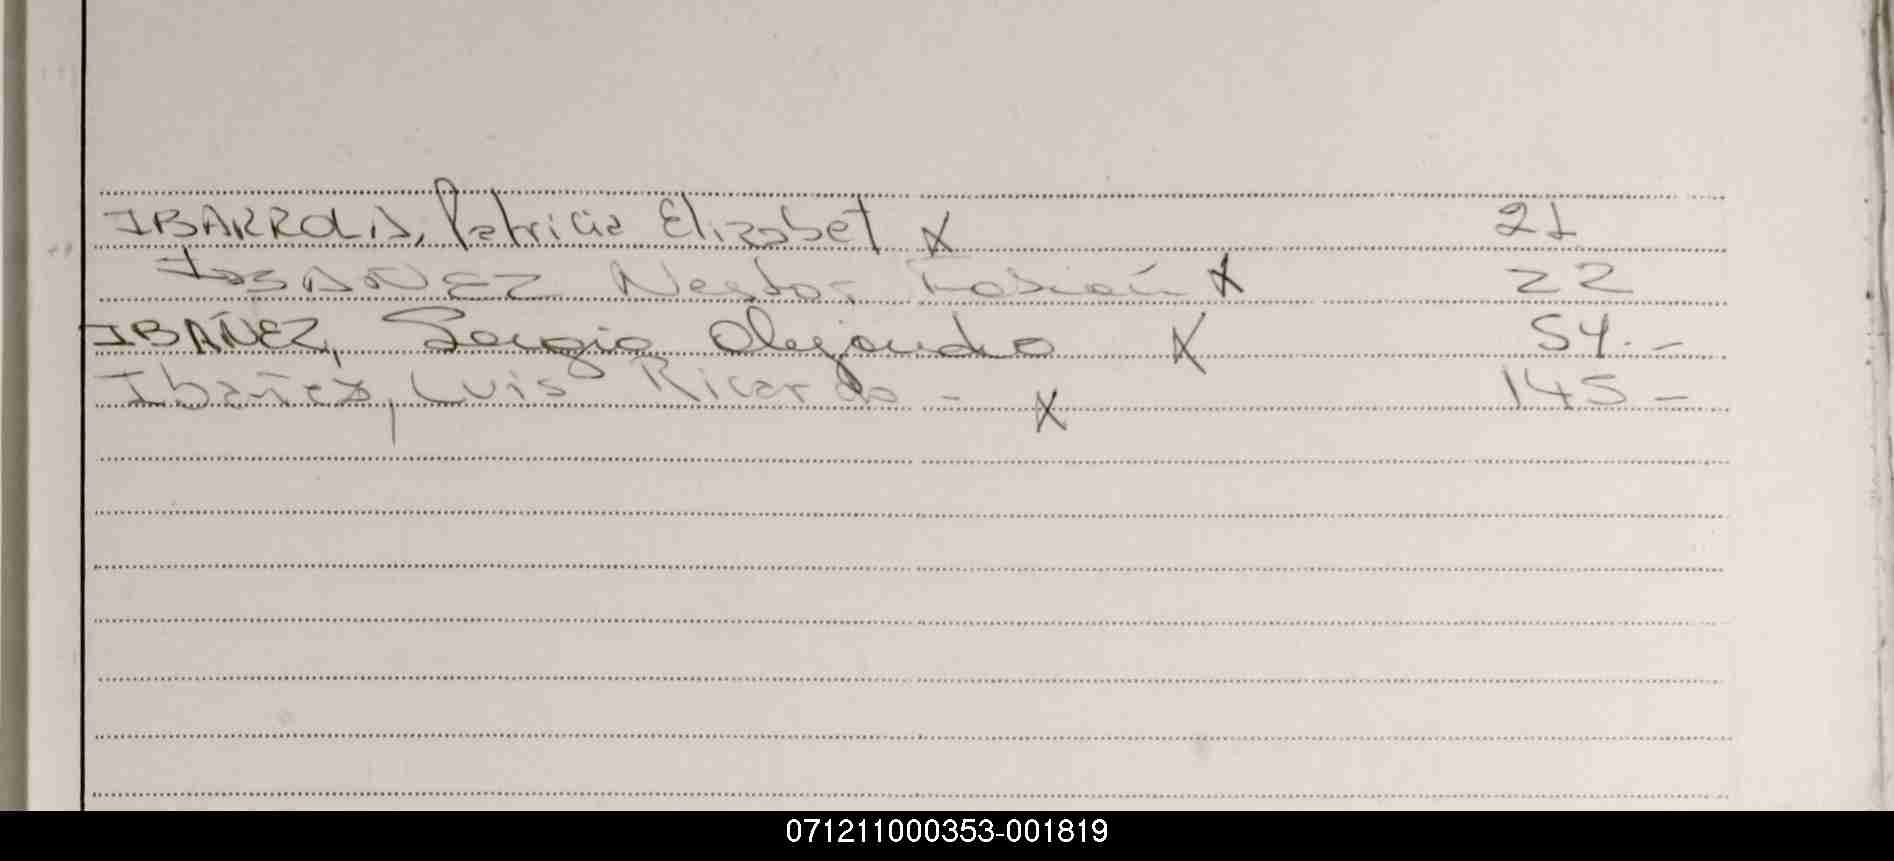 IBARROLA, Patricia Elizabet X 21
IBAÑEZ Nestor Fabián X 22
IBAÑEZ, Sergio Alejandro X 54.-
Ibañez, Luis Ricardo - X 145-
071211000353-001819